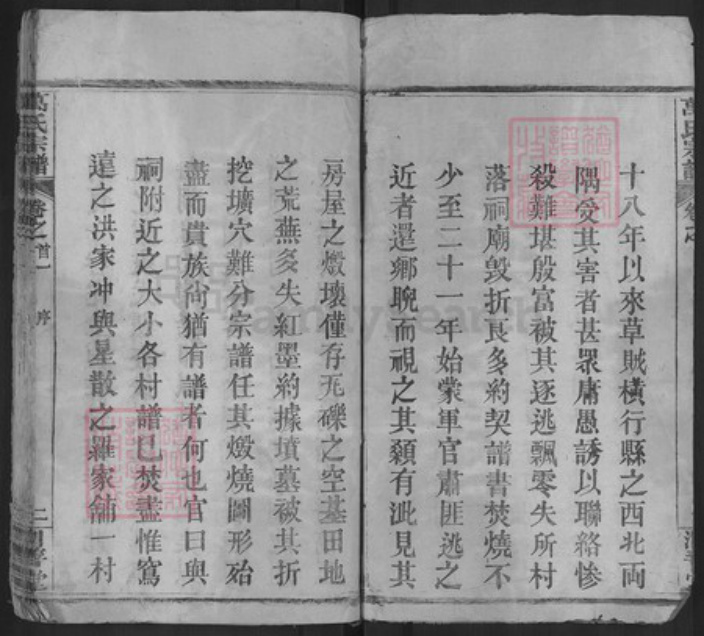 十八年以來草賊橫行縣之西北両
隅受其害者甚眾庸愚誘以聯絡慘
殺難堪殷富被其逐逃飄零失所村
落祠廟毀折良多約契譜書焚燒不
少至二十一年始蒙軍官肅匪逃之
近者還鄉睨而視之其顙有泚見其
萬氏宗譜
卷之首一
序
二
房屋之燬壞僅存瓦礫之空基田地
之荒蕪多失紅墨約據墳墓被其折
挖壙穴難分宗譜任其燬燒圖形殆
盡而貴族尙猶有譜者何也官曰與
祠附近之大小各村譜已焚盡惟窵
遠之洪家冲與星散之羅家舖一村